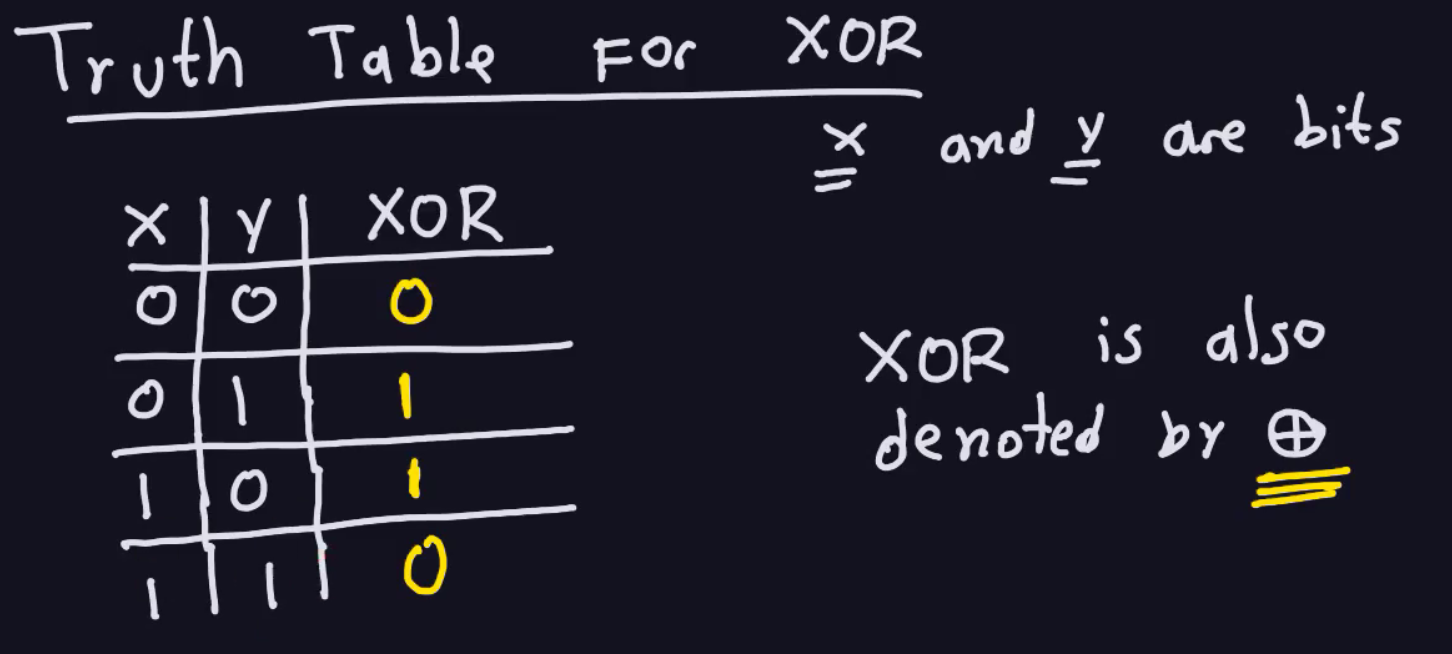 Truth Table For XOR
x and y are bits
X Y XOR
0 0 0
0 1 1
1 0 1
1 1 0
XOR is also
denoted by ⊕